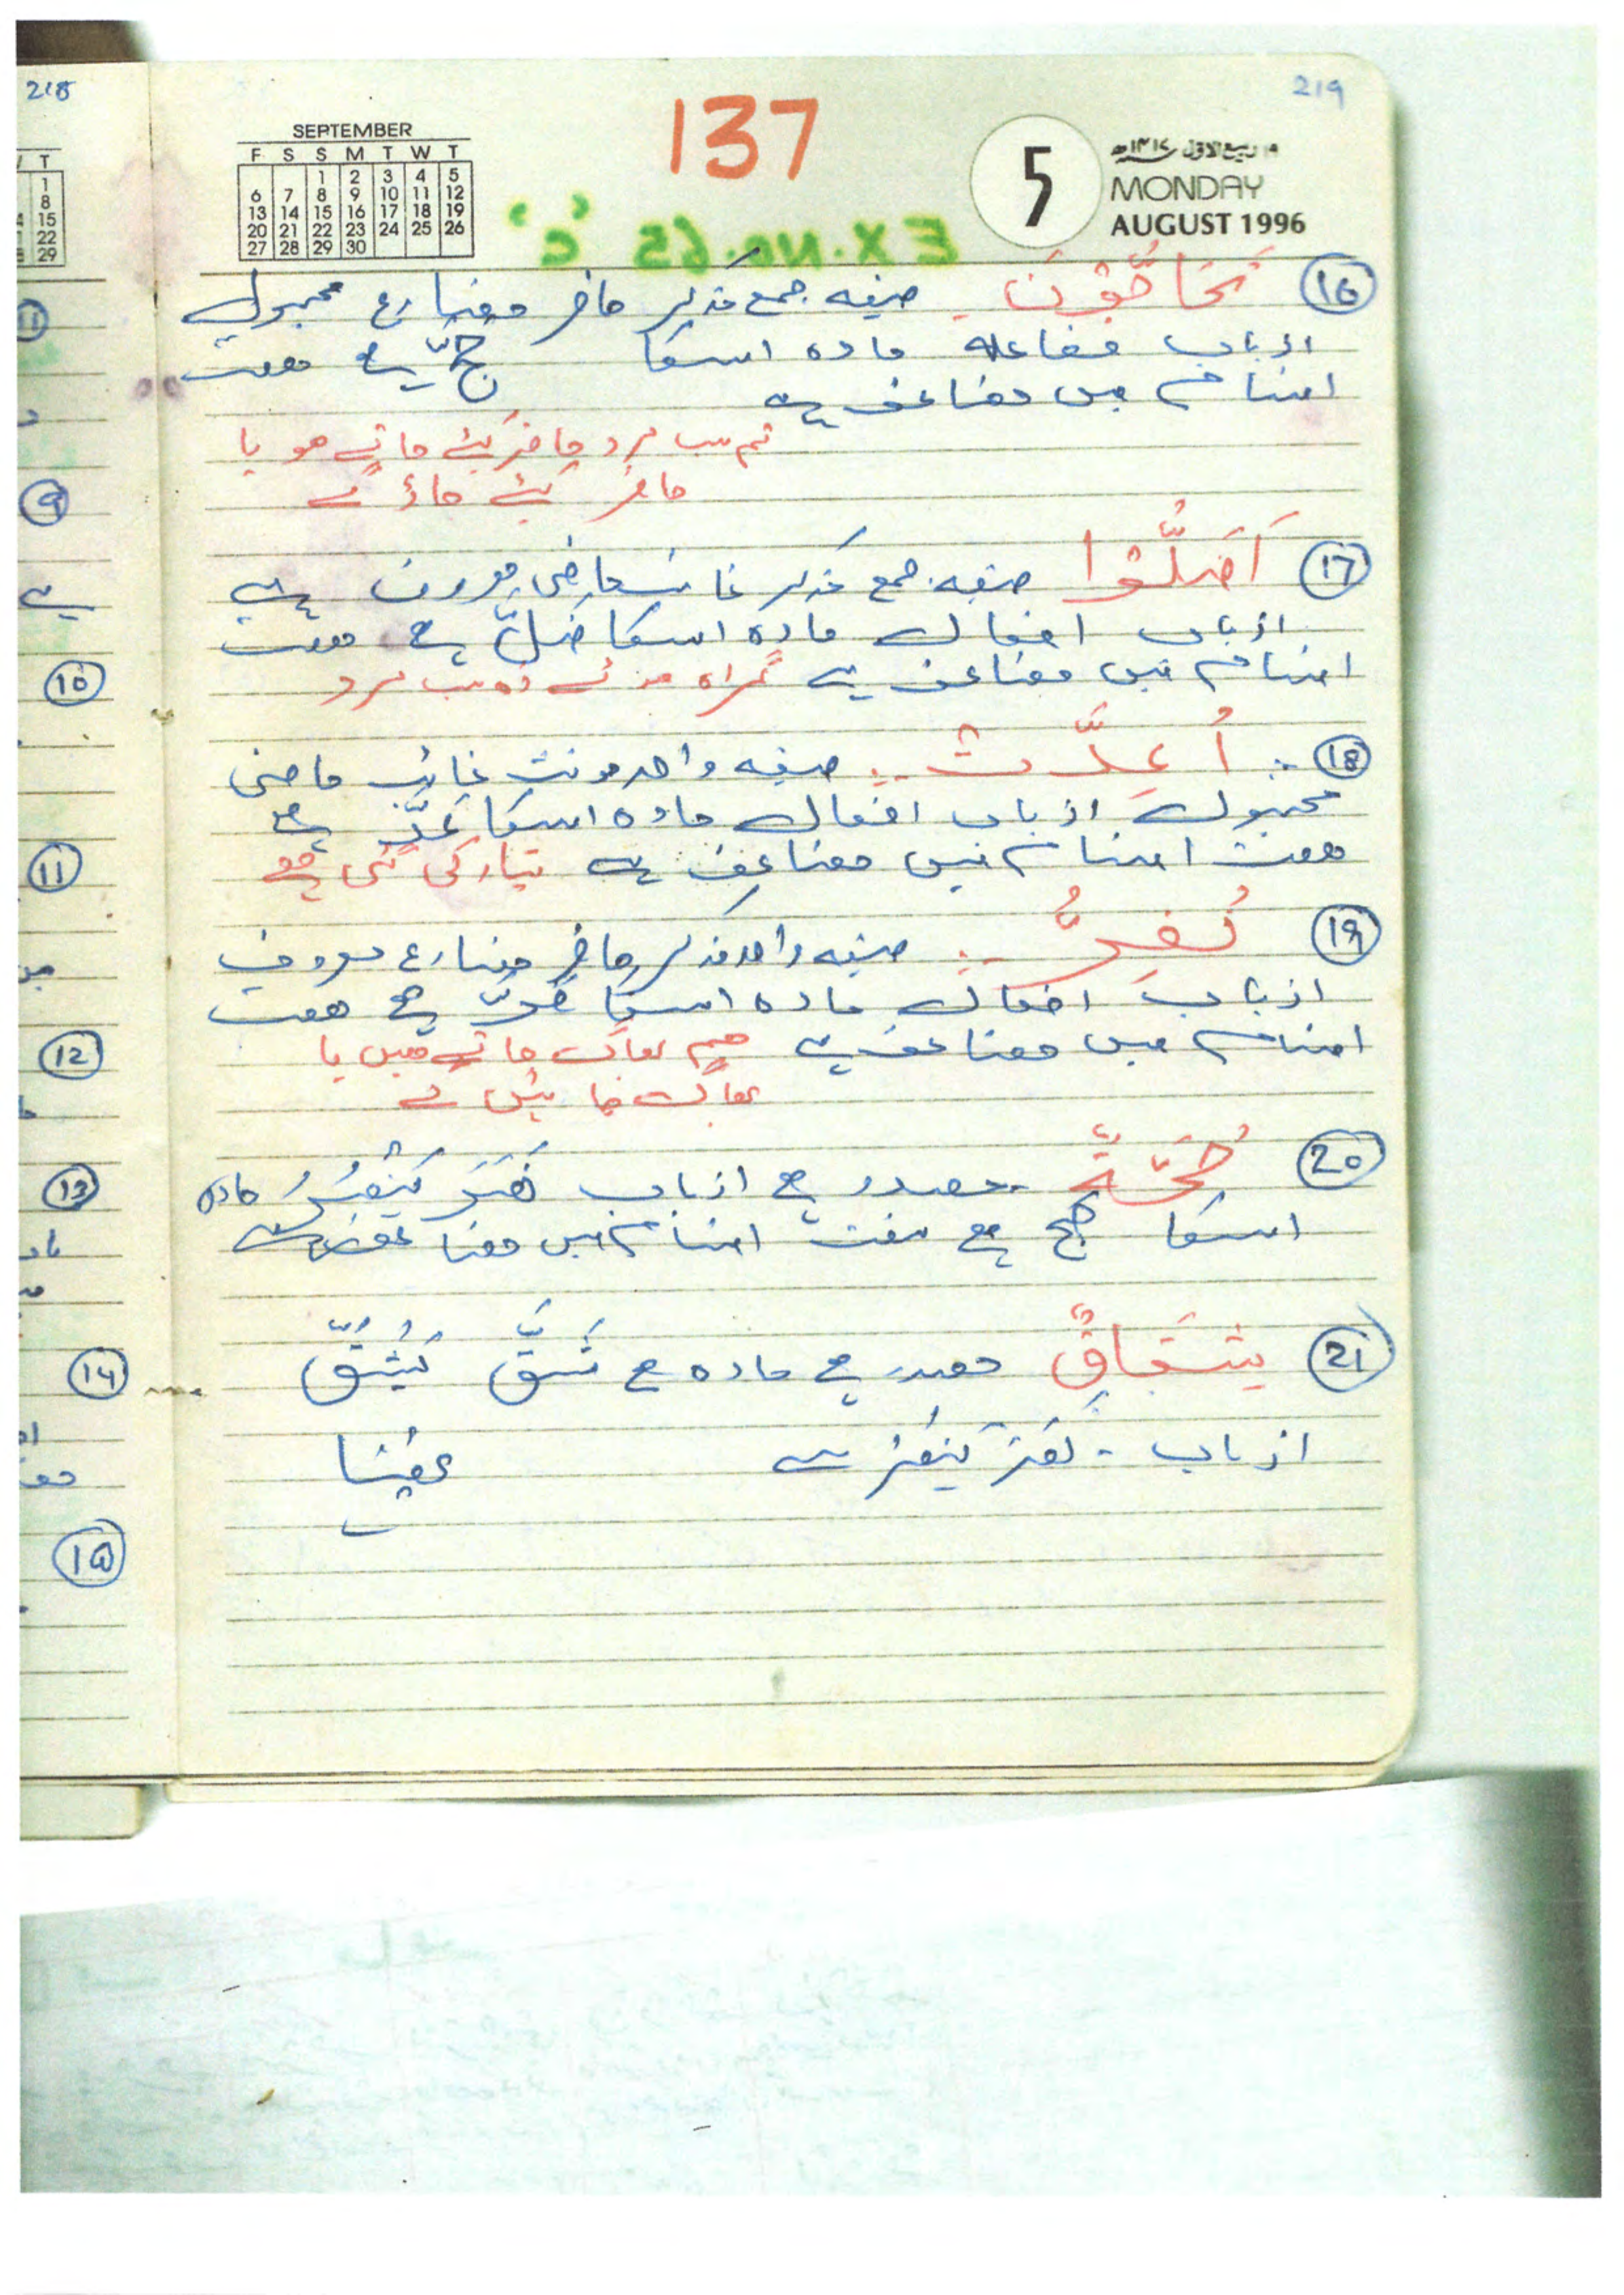 218
219
137
SEPTEMBER
F S S M T W T
1 2 3 4 5
6 7 8 9 10 11 12
13 14 15 16 17 18 19
20 21 22 23 24 25 26
27 28 29 30
5
ربیع الاول ۱۴۱۷ھ
MONDAY
AUGUST 1996
EX.No.65 'C'
16 تُحَاجُّوْنَ۔ صیغہ جمع مذکر حاضر مضارع مجہول
از باب مفاعلہ مادہ اسکا حجّ ہے ہفت
اقسام میں مضاعف ہے
تم سب مرد حاضر کئے جاتے ہو یا
حاضر کئے جاؤ گے
17 اَضَلُّوْا صیغہ جمع مذکر غائب ماضی معروف ہے
از باب افعال مادہ اسکا ضلّ ہے ہفت
اقسام میں مضاعف ہے گمراہ ہوئے وہ سب مرد
18 اُعِدَّتْ صیغہ واحد مونث غائب ماضی
مجہول از باب افعال مادہ اسکا عدّ ہے
ہفت اقسام میں مضاعف ہے تیار کی گئی ہے
19 نُفِرُّ صیغہ واحد مذکر حاضر مضارع معروف
از باب افعال مادہ اسکا فرّ ہے ہفت
اقسام میں مضاعف ہے ہم بھاگ جاتے ہیں یا
بھاگ جائیں گے
20 حُجَّةٌ مصدر ہے از باب نَصَرَ يَنْصُرُ مادہ
اسکا حج ہے ہفت اقسام میں مضاعف ہے
21 شِقَاقٍ مصدر ہے مادہ ہے شَقَّ يَشُقُّ
از باب - نَصَرَ يَنْصُرُ سے
11
9
10
11
12
13
14
15